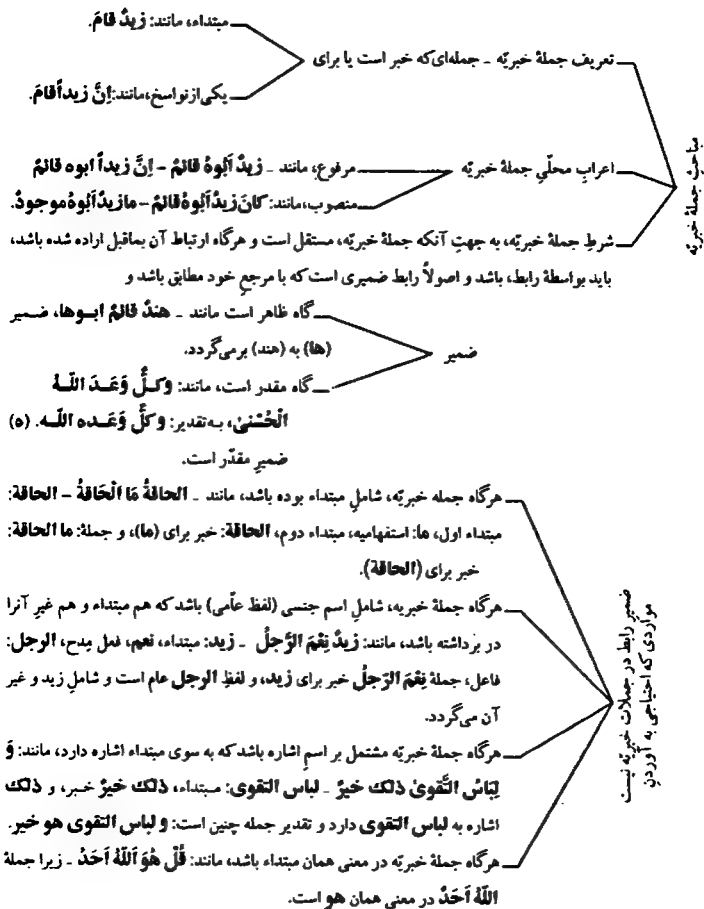 مبتداء، مانند: زیدٌ قامَ.
تعریف جملهٔ خبریّه ـ جمله‌ای‌که خبر است یا برای
یکی‌از‌نواسخ،مانند:اِنَّ زیداًقامَ.
مباحثِ جملهٔ خبریّه
اعرابِ محلّیِ جملهٔ خبریّه
مرفوع، مانند ـ زیدٌ اَبُوهُ قائمٌ – اِنَّ زیداً ابوه قائمٌ
منصوب،مانند: کانَ زیدٌاَبُوهُ‌قائمٌ–مازیدٌاَبُوهُ‌موجودٌ.
شرطِ جملهٔ خبریّه، به جهتِ آنکه جملهٔ خبریّه، مستقل است و هرگاه ارتباط آن بماقبل اراده شده باشد،
باید بواسطهٔ رابط، باشد و اصولاً رابط ضمیری است که با مرجعِ خود مطابق باشد و
گاه ظاهر است مانند ـ هندٌ قائمٌ ابـوها، ضـمیر
(ها) به (هند) برمی‌گردد.
ضمیر
گاه مقدر است، مانند: وکـلٌّ وَعَـدَ اللّـهُ
الْحُسْنیٰ، بـه‌تقدیر: و کلٌّ وَعَـده اللّـه. (ه)
ضمیرِ مقدّر است.
هرگاه جمله خبریّه، شاملِ مبتداء بوده باشد، مانند ـ الحاقةُ مَا الْحَاقةُ – الحاقة:
مبتداء اول، ما: استفهامیه، مبتداء دوم، الحاقة: خبر برای (ما)، و جملهٔ: ما الحاقة:
خبر برای (الحاقة).
ضمیرِ رابط در جملات خبریّه نیست
مواردی که احتیاجی به آوردنِ
هرگاه جملهٔ خبریه، شاملِ اسم جنسی (لفظ عاّمی) باشد که هم مبتداء و هم غیرِ آنرا
در برداشته باشد، مانند: زیدٌ نِعْمَ الرَّجلُ ـ زید: مبتداء، نعم، فعل مدح، الرجل:
فاعل، جملهٔ نِعْمَ الرّجلُ خبر برای زید، و لفظِ الرجل عام است و شاملِ زید و غیر
آن می‌گردد.
هرگاه جملهٔ خبریّه مشتمل بر اسمِ اشاره باشد که به سوی مبتداء اشاره دارد، مانند: وَ
لِبَاسُ التَّقویٰ ذلك خیرٌ ـ لباس التقوی: مـبتداء، ذلك خیرٌ خـبر، و ذلك
اشاره به لباس التقوی دارد و تقدیر جمله چنین است: و لباس التقوی هو خیر.
هرگاه جملهٔ خبریّه در معنی همان مبتداء باشد، مانند: قُلْ هُوَ اَللّهُ اَحَدٌ ـ زیرا جملهٔ
اللّهُ اَحَدٌ در معنی همان هو است.